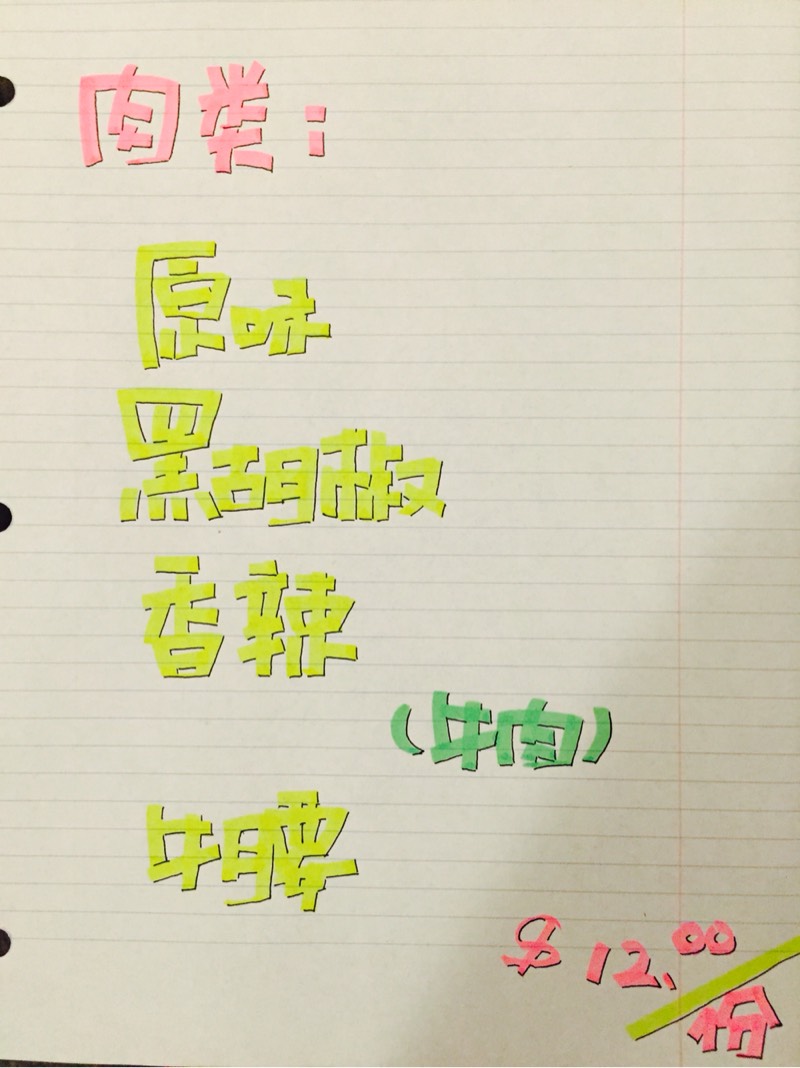 肉类：
原味
黑胡椒
香辣
（牛肉）
牛腰
$12.00/份